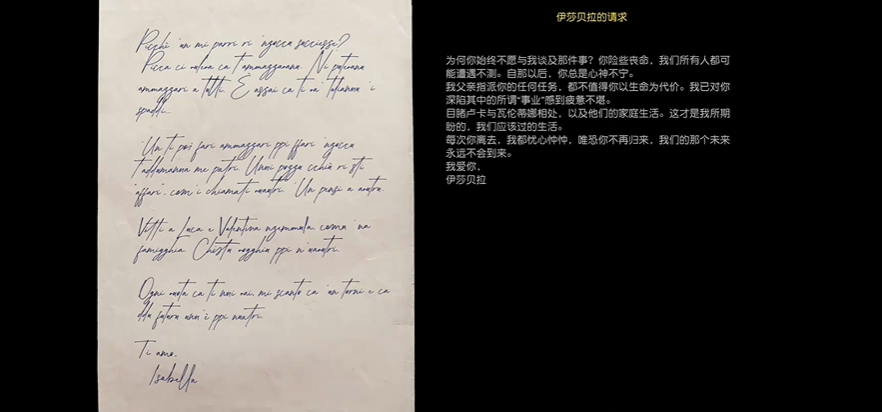 Picchì 'un mi parri ri 'nzocca succiesse?
Picca ci vuleva ca t'ammazzavanu. Ni putevanu
ammazzari a tutti. È assai ca ti va' taliannu 'i
spaddi.
'Un ti poi fari ammazzari ppi ffari 'nzocca
t'addumanna me patri. Unni pozzu cchiù ri sti
'affari', com'i chiamati vuatri. 'Un pensi a nuatri.
Vitti a Luca e Valentina nzemmula, comu 'na
famigghia. Chistu vogghiu ppi n'nuautri.
Ogni vuota ca ti nni vai, mi scantu ca 'un torni e ca
ddu futuru unn'è ppi nuatri.
Ti amo.
Isabella
伊莎贝拉的请求
为何你始终不愿与我谈及那件事？你险些丧命，我们所有人都可
能遭遇不测。自那以后，你总是心神不宁。
我父亲指派你的任何任务，都不值得你以生命为代价。我已对你
深陷其中的所谓“事业”感到疲惫不堪。
目睹卢卡与瓦伦蒂娜相处，以及他们的家庭生活。这才是我所期
盼的，我们应该过的生活。
每次你离去，我都忧心忡忡，唯恐你不再归来，我们的那个未来
永远不会到来。
我爱你，
伊莎贝拉